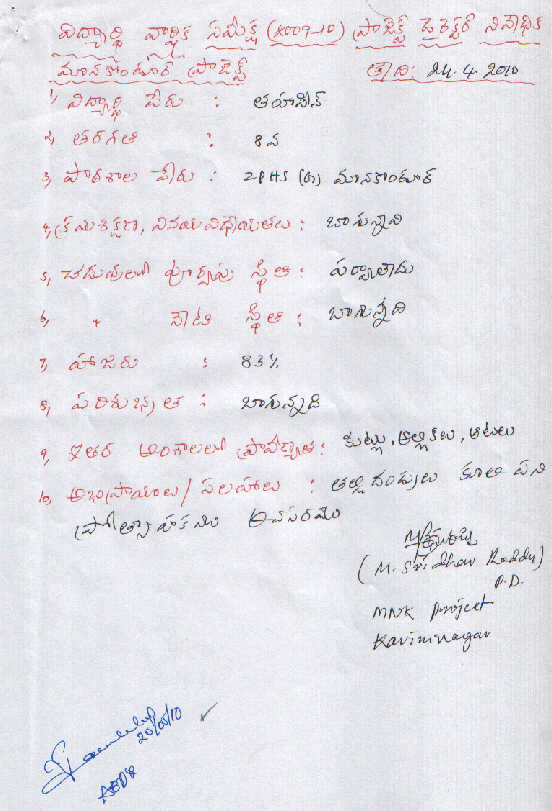 విద్యార్థి వార్షిక సమీక్ష (2009-10) ప్రాజెక్ట్ డైరెక్టర్ నివేదిక
మానకొండూర్ ప్రాజెక్ట్ తేది: 24.4.2010
1, విద్యార్థి పేరు :
2, తరగతి : 8వ
3, పాఠశాల పేరు : ZPHS (B) మానకొండూర్
4, క్రమశిక్షణ, వినయవిధేయతలు : బాగున్నవి
5, చదువులలో పూర్వపు స్థితి : పర్వాలేదు
6, " నేటి స్థితి : బాగున్నది
7, హాజరు : 83%
8, పరిశుభ్రత : బాగున్నది
9, ఇతర అంశాలలో ప్రావీణ్యత : కుట్లు, అల్లికలు, ఆటలు
10, అభిప్రాయాలు / సలహాలు : తల్లిదండ్రులు కూలి పని
ప్రోత్సాహకము అవసరము
(M. Sridhar Reddy)
P.D.
MNK Project
Karimnagar